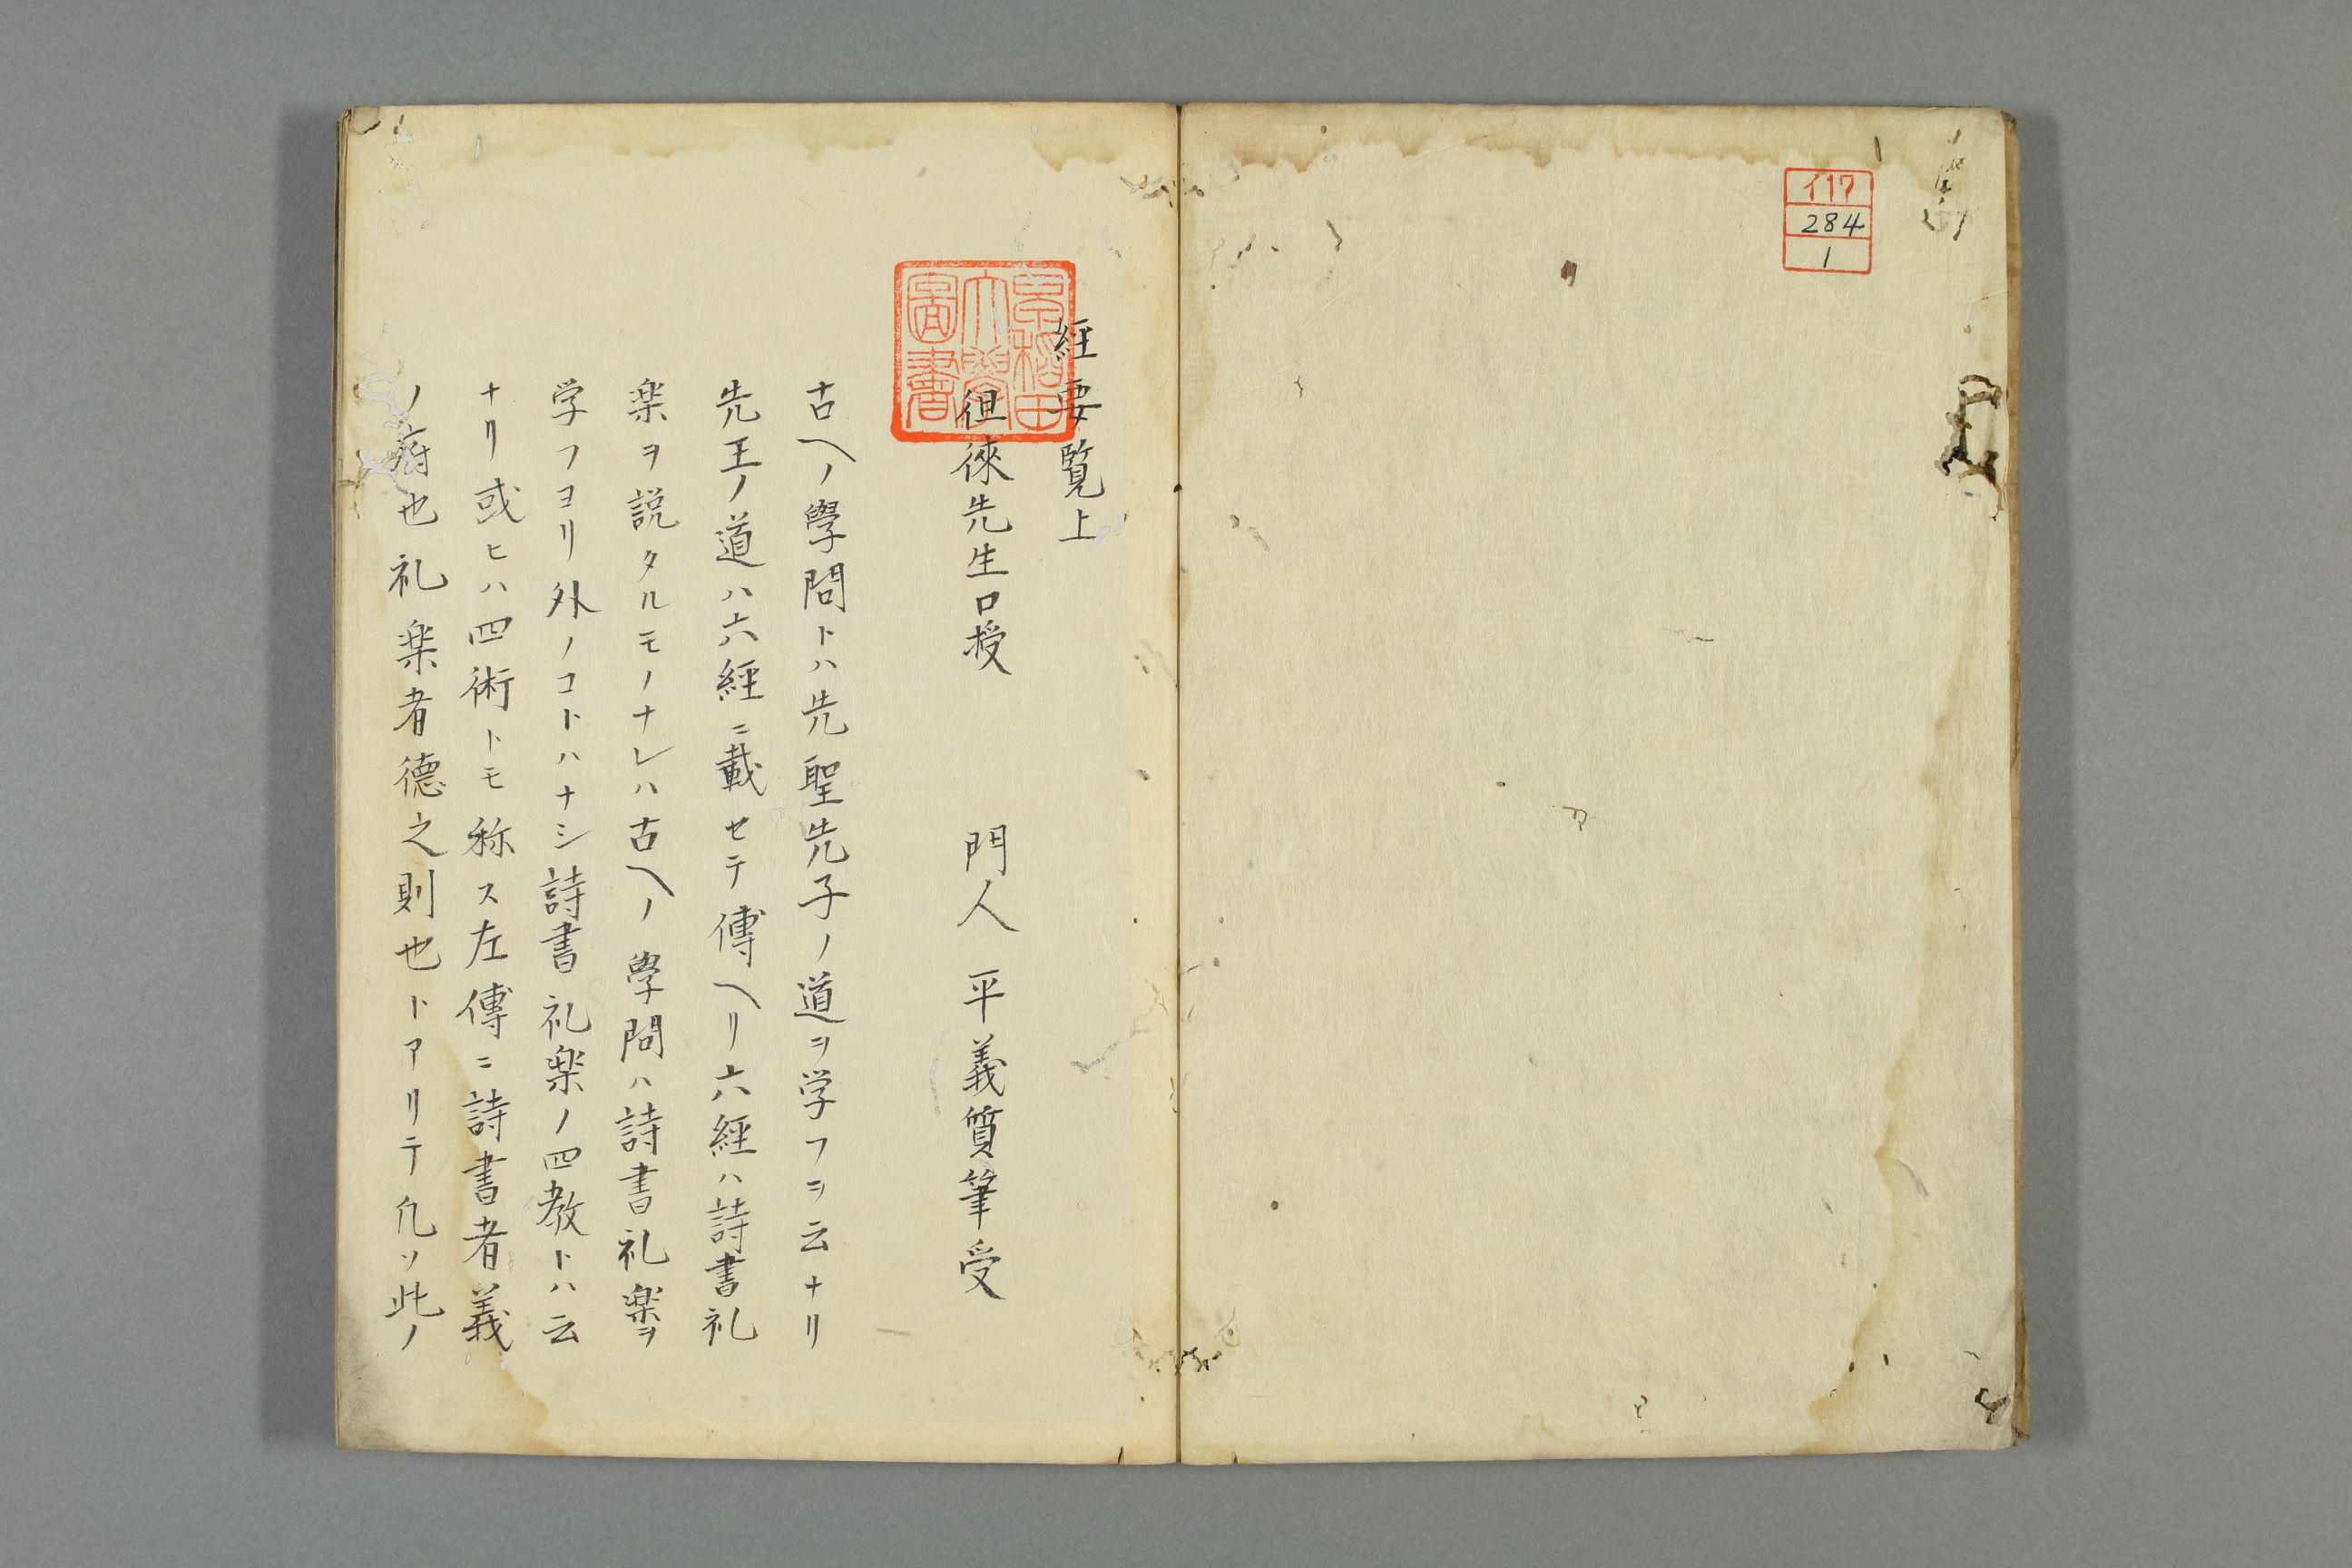 イ17
284
1
早稲田
大學
圖書
經要覧上
徂徠先生口授　門人　平義質筆受
古ヘノ學問トハ先聖先子ノ道ヲ学フヲ云ナリ
先王ノ道ハ六經ニ載セテ傳ヘリ六經ハ詩書礼
楽ヲ説タルモノナレハ古ヘノ學問ハ詩書礼楽ヲ
学フヨリ外ノコトハナシ詩書礼楽ノ四教トハ云
ナリ或ヒハ四術トモ称ス左傳ニ詩書者義
ノ府也礼楽者德之則也トアリテ凢ソ此ノ